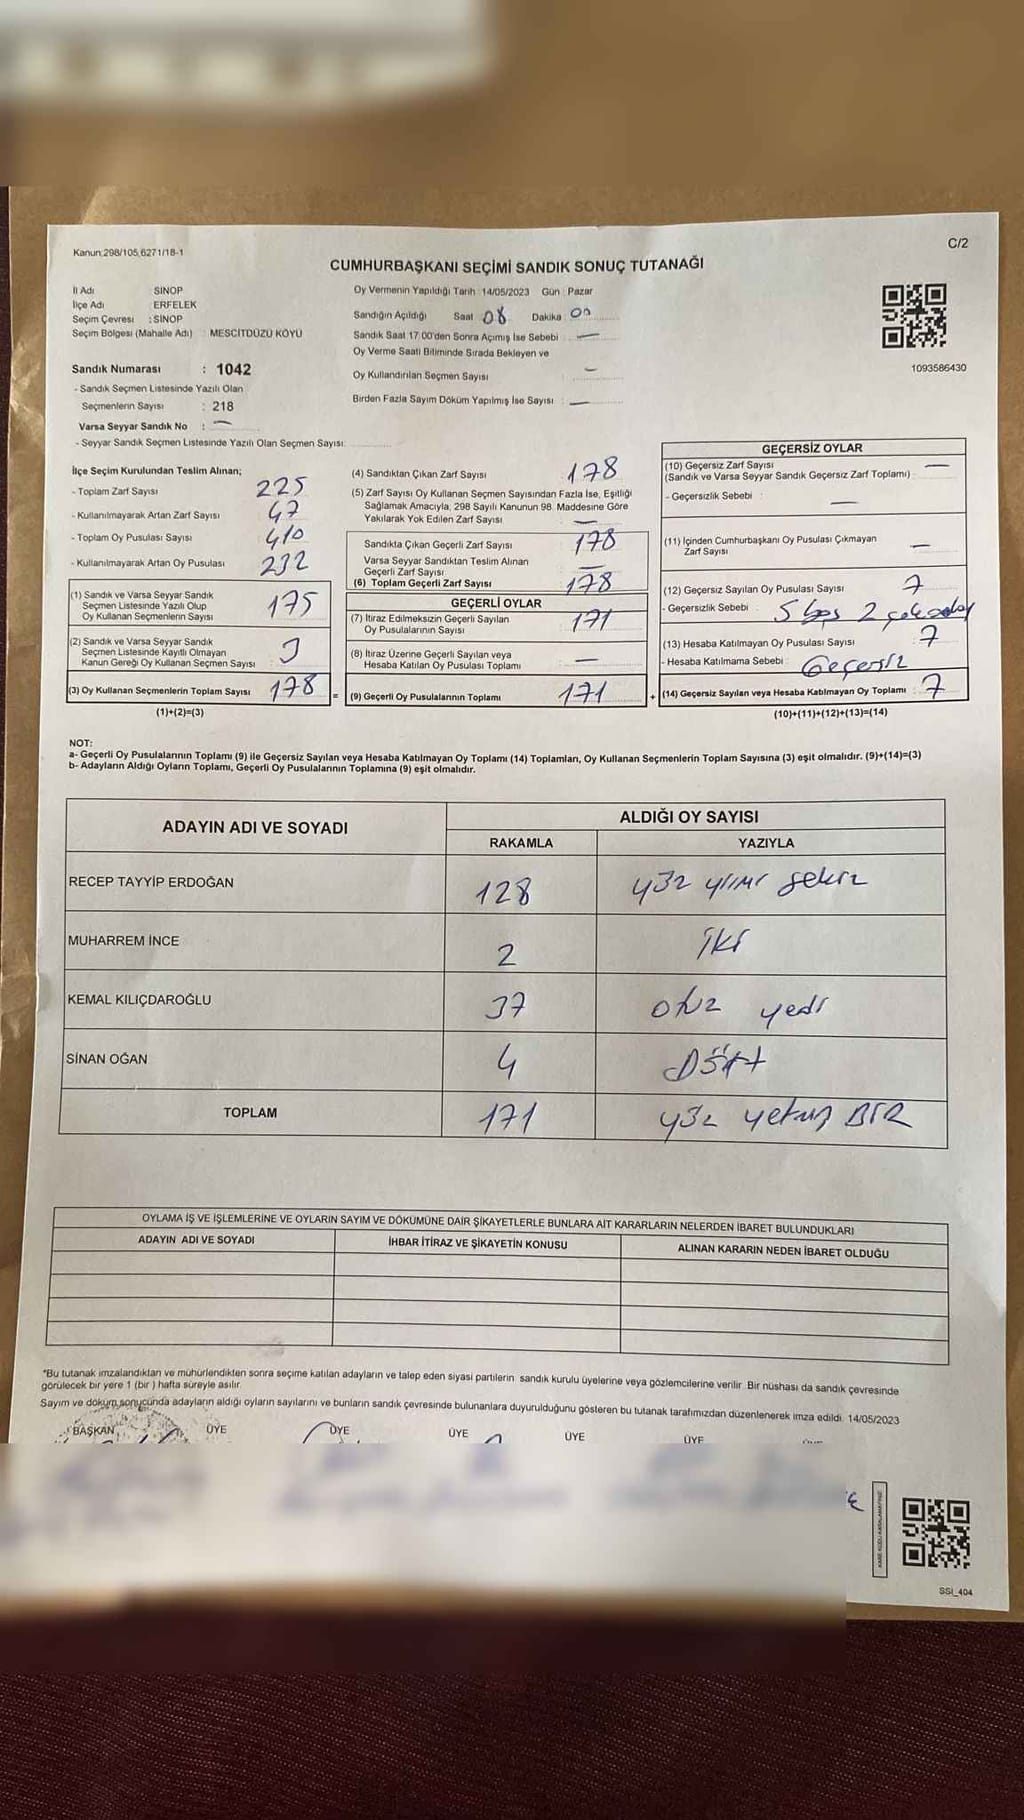 Kanun:298/105,6271/18-1
C/2
CUMHURBAŞKANI SEÇİMİ SANDIK SONUÇ TUTANAĞI
İl Adı : SİNOP
İlçe Adı : ERFELEK
Seçim Çevresi : SİNOP
Seçim Bölgesi (Mahalle Adı) : MESCİTDÜZÜ KÖYÜ
Sandık Numarası : 1042
- Sandık Seçmen Listesinde Yazılı Olan
Seçmenlerin Sayısı : 218
Varsa Seyyar Sandık No : —
- Seyyar Sandık Seçmen Listesinde Yazılı Olan Seçmen Sayısı:
Oy Vermenin Yapıldığı Tarih :14/05/2023 Gün : Pazar
Sandığın Açıldığı Saat : 08 Dakika : 00
Sandık Saat 17:00'den Sonra Açımış İse Sebebi : —
Oy Verme Saati Bitiminde Sırada Bekleyen ve
Oy Kullandırılan Seçmen Sayısı : —
Birden Fazla Sayım Döküm Yapılmış İse Sayısı : —
1093586430
İlçe Seçim Kurulundan Teslim Alınan;
- Toplam Zarf Sayısı 225
- Kullanılmayarak Artan Zarf Sayısı 47
- Toplam Oy Pusulası Sayısı 410
- Kullanılmayarak Artan Oy Pusulası 232
(1) Sandık ve Varsa Seyyar Sandık
Seçmen Listesinde Yazılı Olup
Oy Kullanan Seçmenlerin Sayısı 175
(2) Sandık ve Varsa Seyyar Sandık
Seçmen Listesinde Kayıtlı Olmayan
Kanun Gereği Oy Kullanan Seçmen Sayısı 3
(3) Oy Kullanan Seçmenlerin Toplam Sayısı 178 =
(1)+(2)=(3)
(4) Sandıktan Çıkan Zarf Sayısı 178
(5) Zarf Sayısı Oy Kullanan Seçmen Sayısından Fazla İse, Eşitliği
Sağlamak Amacıyla, 298 Sayılı Kanunun 98. Maddesine Göre
Yakılarak Yok Edilen Zarf Sayısı —
Sandıkta Çıkan Geçerli Zarf Sayısı 178
Varsa Seyyar Sandıktan Teslim Alınan
Geçerli Zarf Sayısı —
(6) Toplam Geçerli Zarf Sayısı 178
GEÇERLİ OYLAR
(7) İtiraz Edilmeksizin Geçerli Sayılan
Oy Pusulalarının Sayısı 171
(8) İtiraz Üzerine Geçerli Sayılan veya
Hesaba Katılan Oy Pusulası Toplamı —
(9) Geçerli Oy Pusulalarının Toplamı 171 +
GEÇERSİZ OYLAR
(10) Geçersiz Zarf Sayısı
(Sandık ve Varsa Seyyar Sandık Geçersiz Zarf Toplamı) : —
- Geçersizlik Sebebi : —
(11) İçinden Cumhurbaşkanı Oy Pusulası Çıkmayan
Zarf Sayısı —
(12) Geçersiz Sayılan Oy Pusulası Sayısı : 7
- Geçersizlik Sebebi : 5 boş 2
(13) Hesaba Katılmayan Oy Pusulası Sayısı : 7
- Hesaba Katılmama Sebebi : Geçersiz
(14) Geçersiz Sayılan veya Hesaba Katılmayan Oy Toplamı : 7
(10)+(11)+(12)+(13)=(14)
NOT:
a- Geçerli Oy Pusulalarının Toplamı (9) ile Geçersiz Sayılan veya Hesaba Katılmayan Oy Toplamı (14) Toplamları, Oy Kullanan Seçmenlerin Toplam Sayısına (3) eşit olmalıdır. (9)+(14)=(3)
b- Adayların Aldığı Oyların Toplamı, Geçerli Oy Pusulalarının Toplamına (9) eşit olmalıdır.
ADAYIN ADI VE SOYADI ALDIĞI OY SAYISI
RAKAMLA YAZIYLA
RECEP TAYYİP ERDOĞAN 128 yüz yirmi sekiz
MUHARREM İNCE 2 iki
KEMAL KILIÇDAROĞLU 37 otuz yedi
SİNAN OĞAN 4 Dört
TOPLAM 171 yüz yetmiş BİR
OYLAMA İŞ VE İŞLEMLERİNE VE OYLARIN SAYIM VE DÖKÜMÜNE DAİR ŞİKAYETLERLE BUNLARA AİT KARARLARIN NELERDEN İBARET BULUNDUKLARI
ADAYIN ADI VE SOYADI İHBAR İTİRAZ VE ŞİKAYETİN KONUSU ALINAN KARARIN NEDEN İBARET OLDUĞU
*Bu tutanak imzalandıktan ve mühürlendikten sonra seçime katılan adayların ve talep eden siyasi partilerin sandık kurulu üyelerine veya gözlemcilerine verilir. Bir nüshası da sandık çevresinde
görülecek bir yere 1 (bir ) hafta süreyle asılır.
Sayım ve döküm sonucunda adayların aldığı oyların sayılarını ve bunların sandık çevresinde bulunanlara duyurulduğunu gösteren bu tutanak tarafımızdan düzenlenerek imza edildi. 14/05/2023
BAŞKAN ÜYE ÜYE ÜYE ÜYE ÜYE
SSİ_404